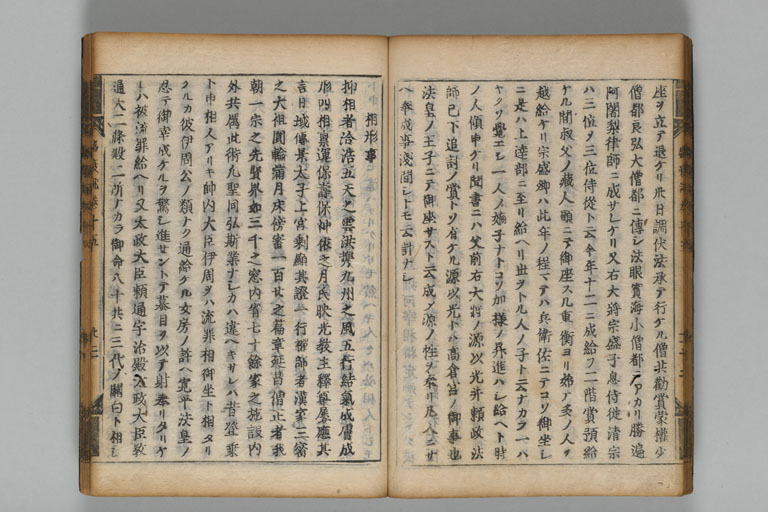 座ヲ立テ退ケリ卅日調伏法承テ行ケル僧共勧賞蒙権少
僧都良弘大僧都ニ傳シ法眼實海小僧都ニアカリ勝遍
阿闍梨律師ニ成サレケリ又右大将宗盛子息侍従清宗
ハ三位ヲ三位侍従ト云今年十二ニ成給フ二階賞預給
ケル間叔父ノ蔵人頭ニテ御座スル重衡ヨリ始テ多ノ人ヲ
越給ケリ宗盛卿ハ此年ノ程マテハ兵衛佐ニテコソ御坐シ
ニ是ハ上達部ニ至リ給ヘリ世ヲトル人ノ子ト云ナカラ一ハ
ヤクソ覺エシ一人ノ嫡子ナトコソ加様ノ昇進ハシ給ヘト時
ノ人傾申ケリ聞書ニハ父前右大将ノ源以光并頼政法
師已下追討ノ賞トソ有ケル源以光トハ高倉宮ノ御事也
法皇ノ王子ニテ御座サスト云成ノ源ノ姓ヲ奉リ凡人ニサ
ヘ奉成事淺間シトモ云計ナシ
相形事
抑相者洽浩五天之雲洪携九州之風五行結氣成膚成
形四相禀運保壽保神依之月氏映光教主釋尊應其
言日域傳景太子上宮剰顕其證一行禅師者漢家三密
之大祖圓輪満月床傍審一百廿之篇章延昌僧止者我
朝一宗之先賢界如三千之窓内省七十餘家之施設内
外共属此術凡聖同弘斯業ナレカハ違ヘキサレハ昔登乗
ト申相人アリキ帥内大臣伊周ヲハ流罪相御坐ト相タリ
ケルカ彼伊周公ノ類ナク通給ケル女房ノ許ヘ寛平法皇ノ
忍テ御幸成ケルヲ驚シ進セントテ蟇目ヲ以テ射奉リタリケ
レハ被流罪給ヘリ又太政大臣頼通宇治殿太政大臣教
通大二條殿二所ナカラ御命八十共ニ三代ノ關白ト相シ